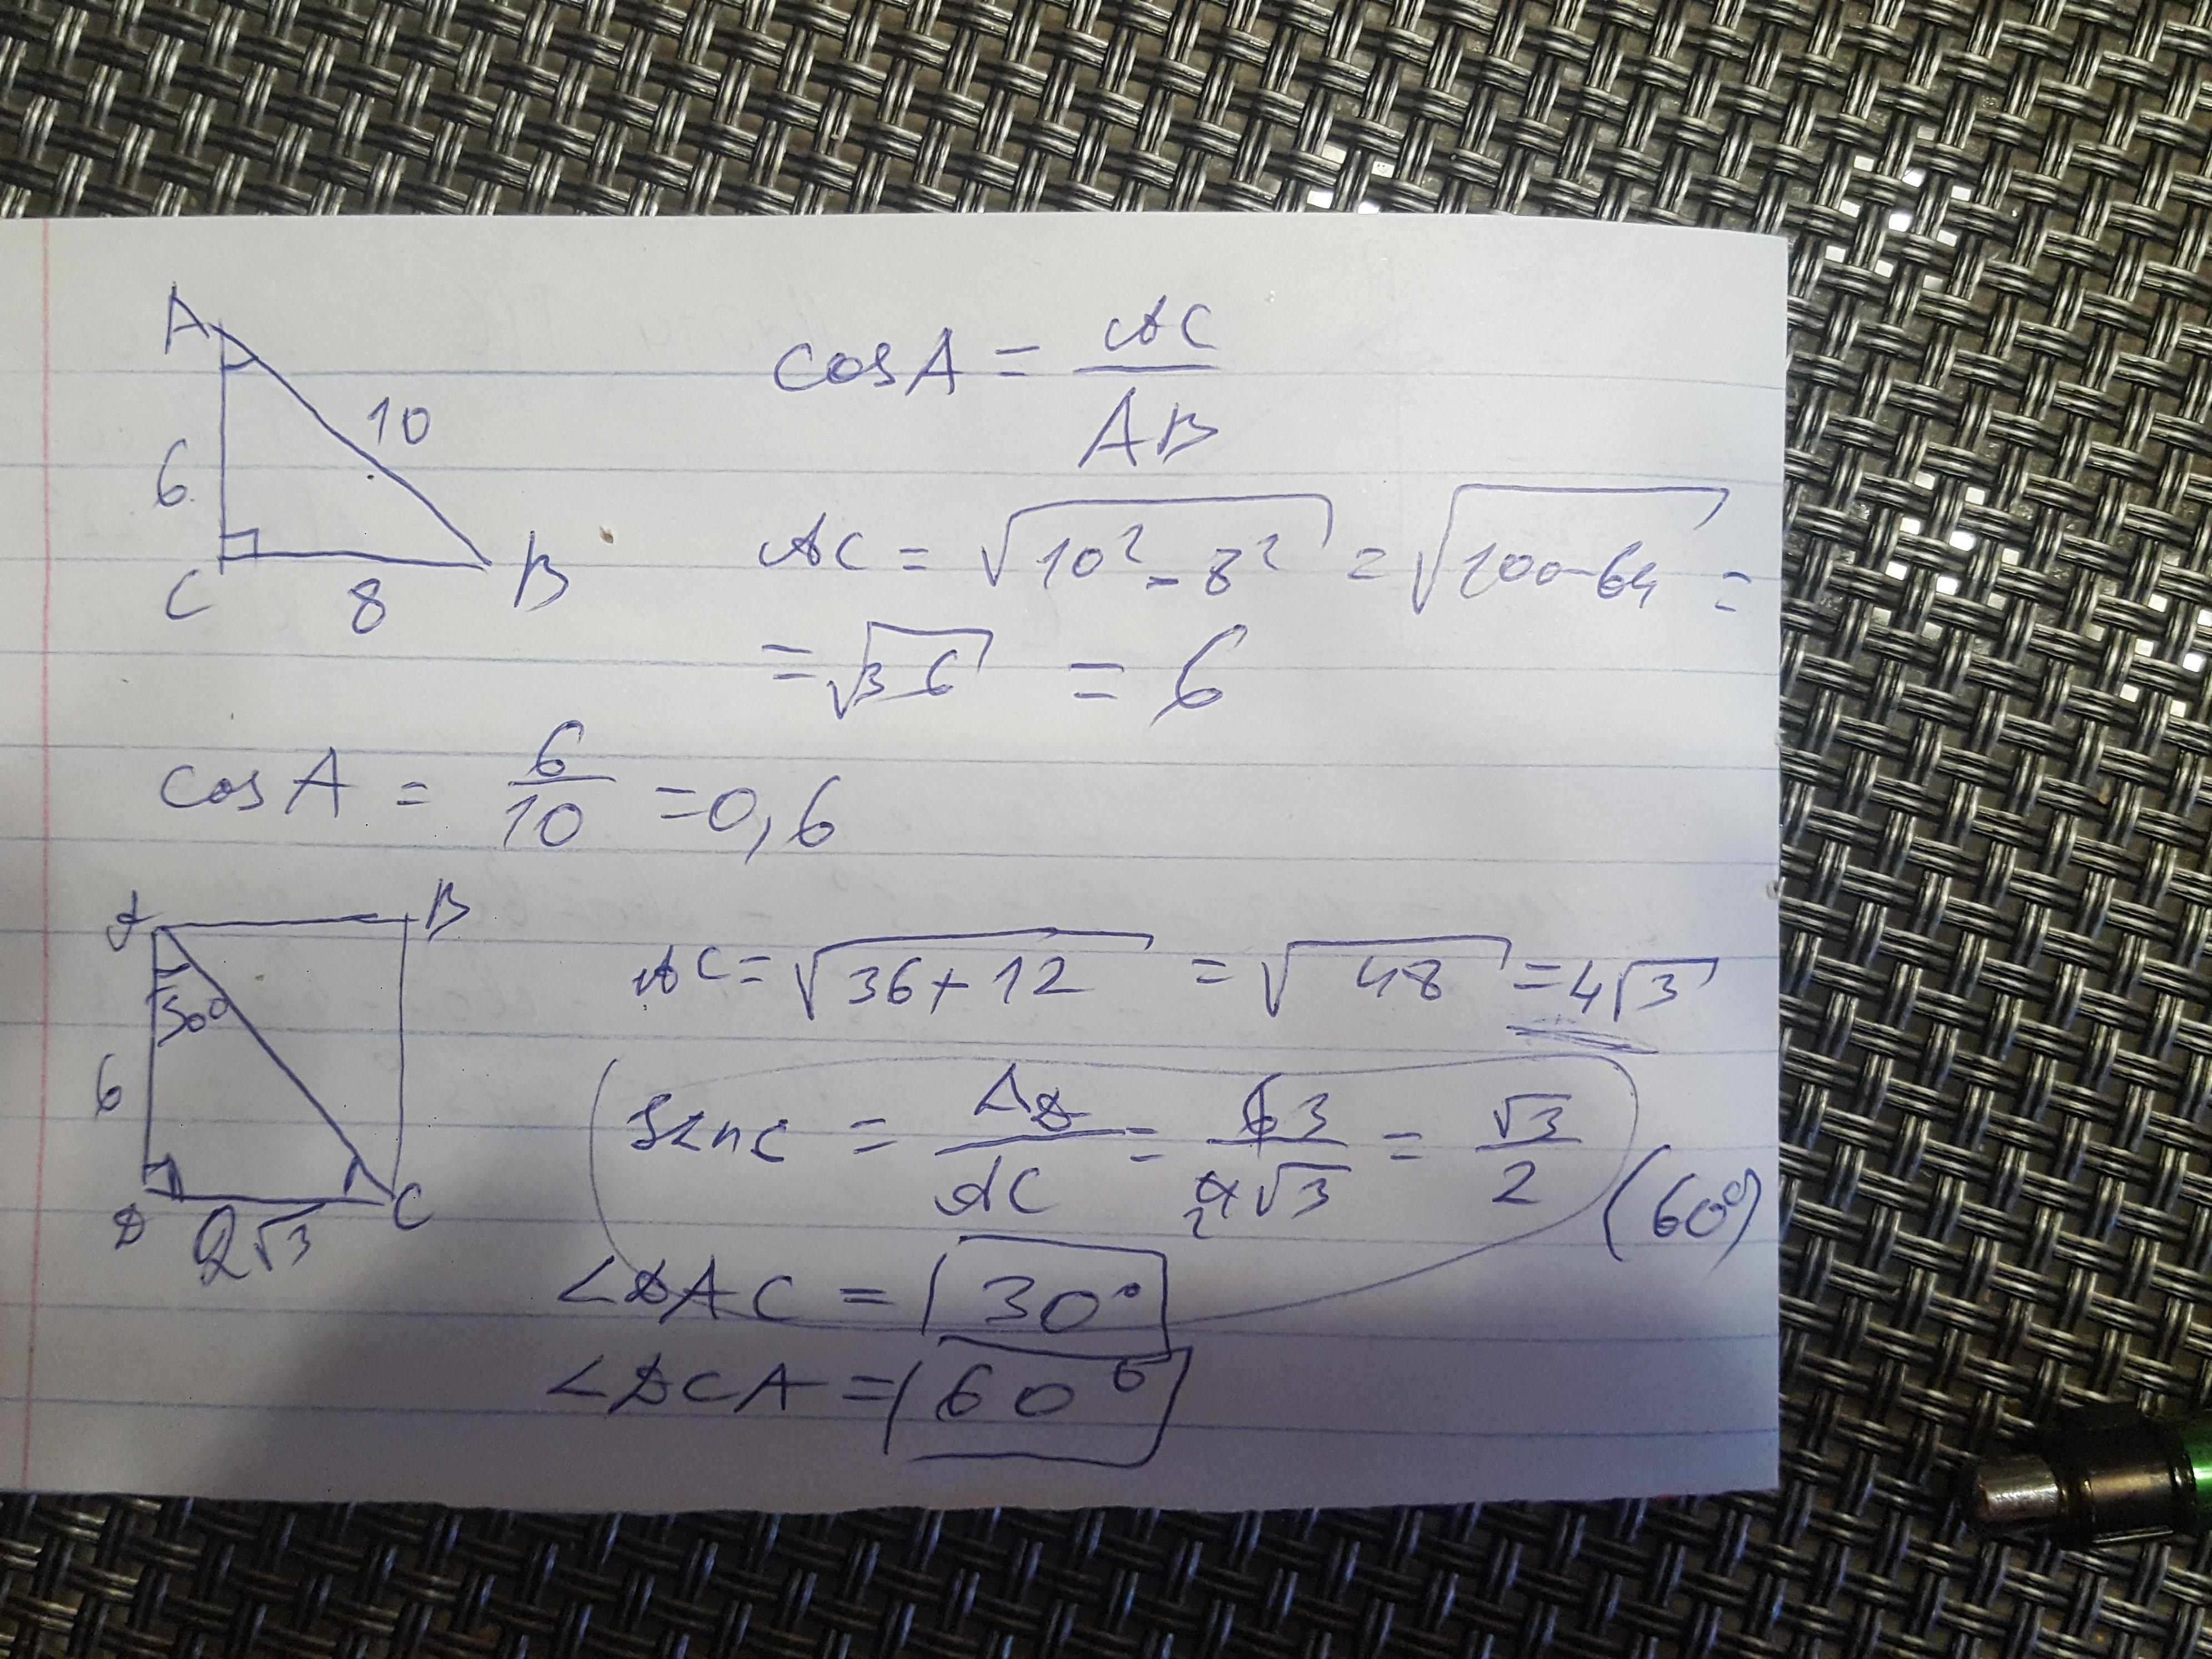 A
10
6
C
8
B
cos A = AC / AB
AC = √(10² - 8²) = √(100-64) =
= √36 = 6
cos A = 6/10 = 0,6
A
B
30°
6
D
2√3
C
AC = √(36 + 12) = √48 = 4√3
sin C = AD / AC = 6 3 / 4 2 √3 = √3 / 2 (60°)
∠DAC = 30°
∠DCA = 60°